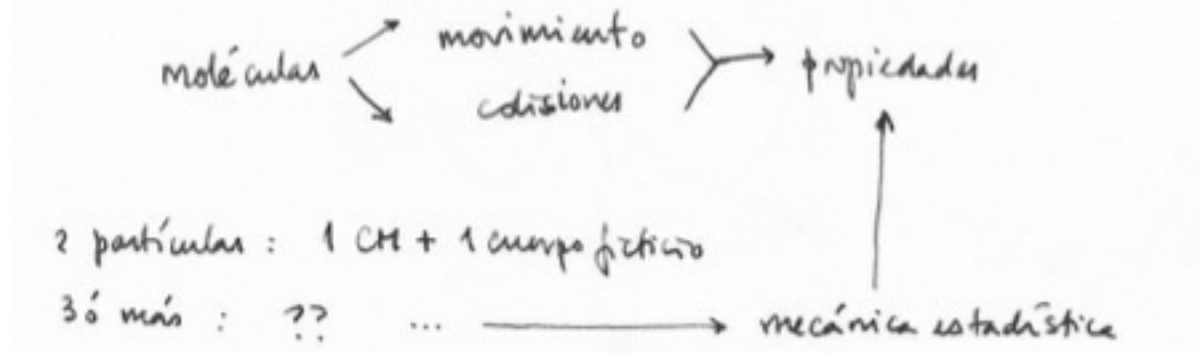 moléculas movimiento propiedades
colisiones
2 partículas : 1 CM + 1 cuerpo ficticio
3 ó más : ?? ... mecánica estadística